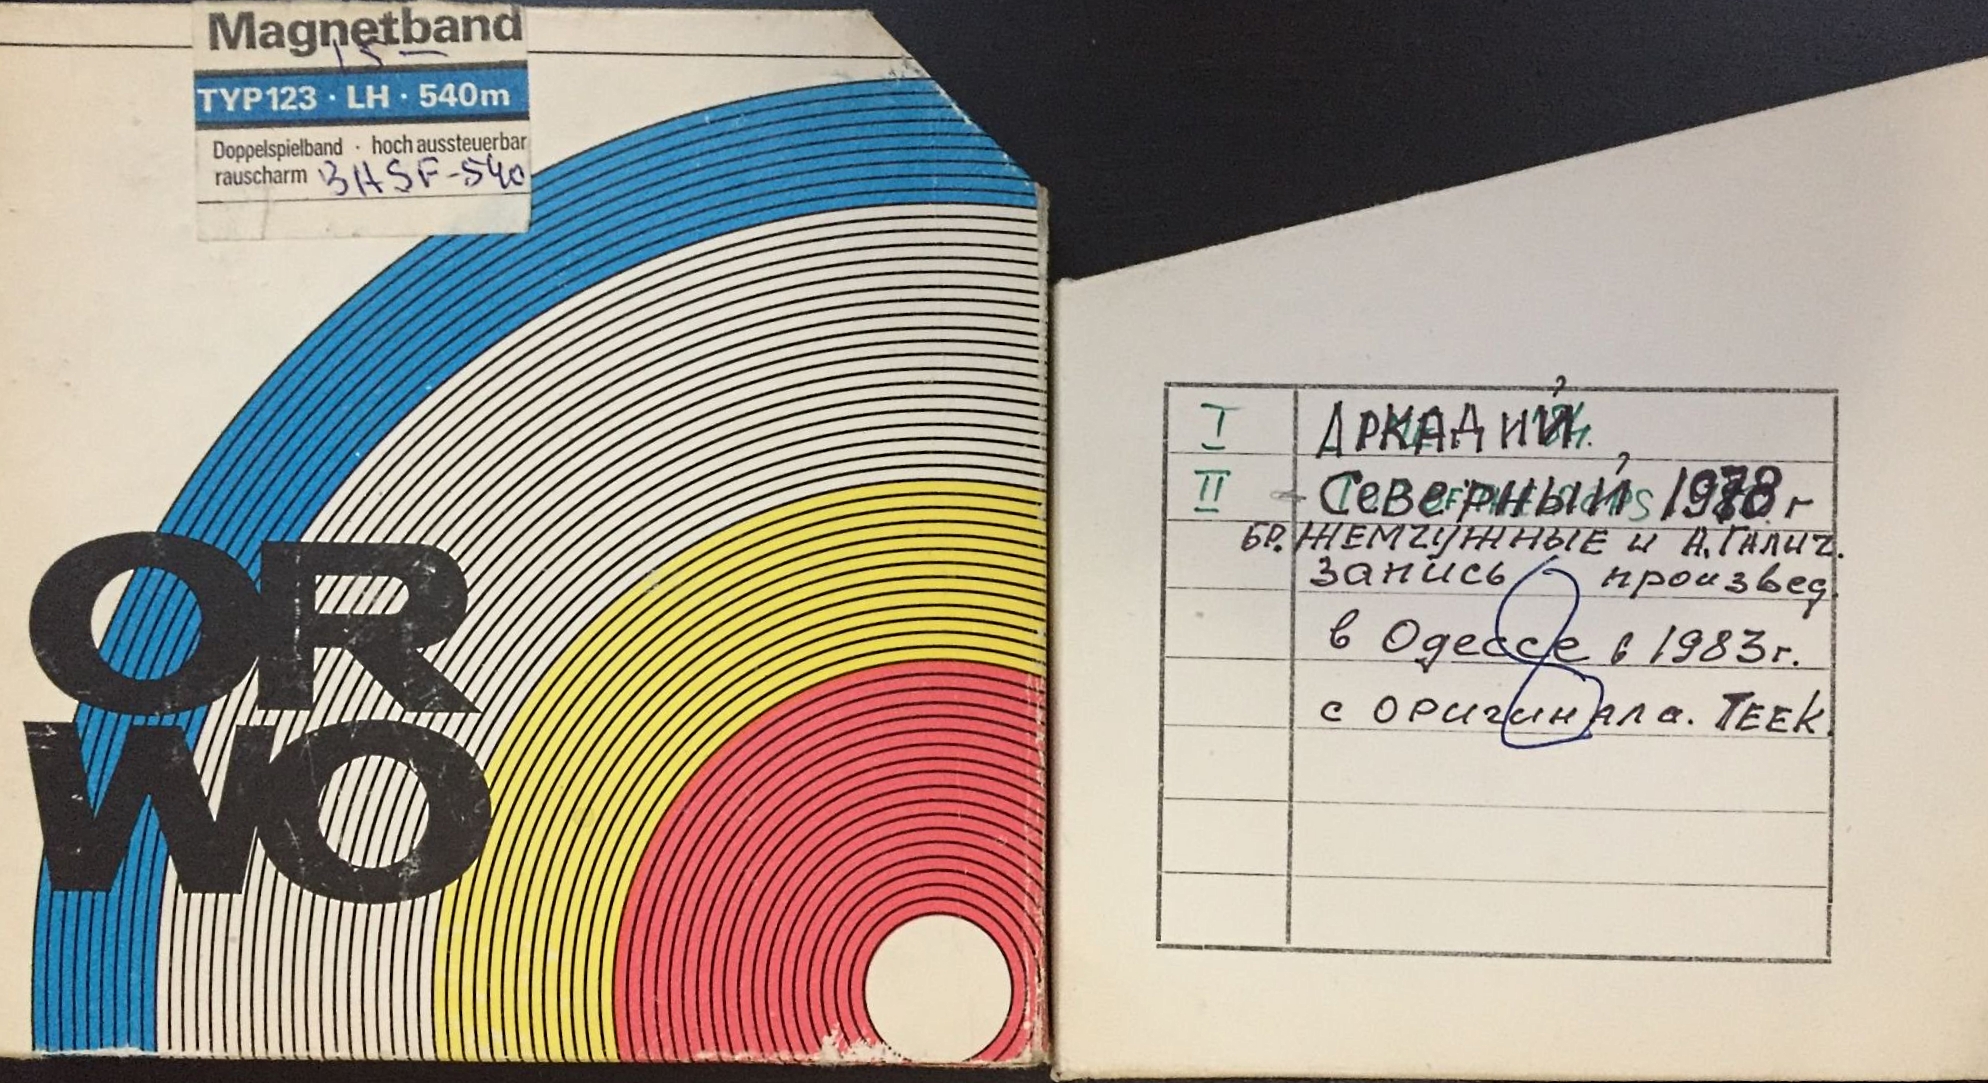 Magnetband
15 —
TYP123 · LH · 540m
Doppelspielband · hoch aussteuerbar
rauscharm ВНSF-540
OR
WO
I АРКАДИЙ
II Северный 1978г
БР. ЖЕМЧУЖНЫЕ и А. ГАЛИЧ.
Запись произвед.
в Одессе в 1983г.
с оригинала. ТЕЕК.
8